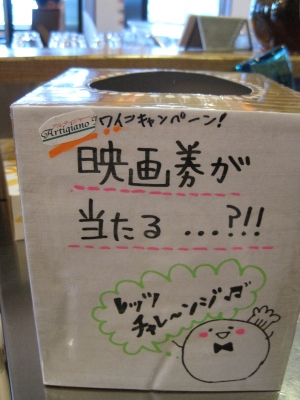 Artigiano
ワイコキャンペーン!
映画券が
当たる ...?!!
レッツ
チャレ〜ンジ♫